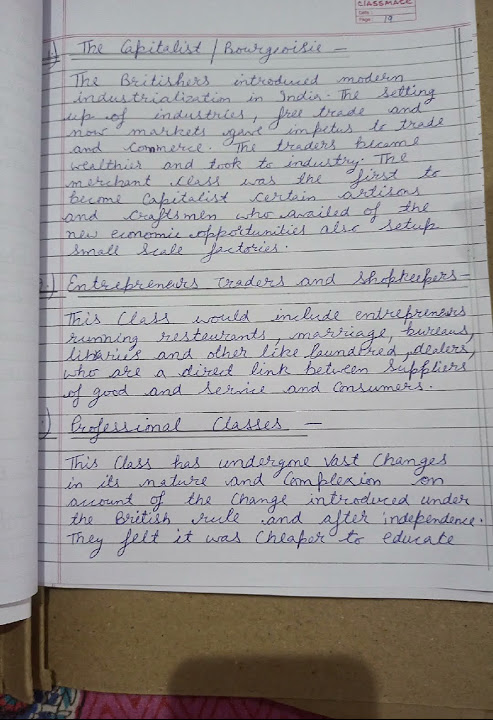 CLASSMATE
Date :
Page : 19
The Capitalist / Bourgeoisie —
The Britishers introduced modern
industrialization in India. The setting
up of industries, free trade and
now markets gave impetus to trade
and commerce. The traders became
wealthier and took to industry. The
merchant class was the first to
become Capitalist certain artisons
and craftsmen who availed of the
new economic opportunities also setup
small scale factories.
2.) Entrepreneurs traders and Shopkeepers —
This Class would include entrepreneurs
running restaurants, marriage, bureaus,
libraries and other like laundred, dealers,
who are a direct link between suppliers
of good and service and consumers.
) Professional Classes —
This Class has undergone vast changes
in its nature and complexion on
account of the change introduced under
the British rule and after independence.
They felt it was cheaper to educate